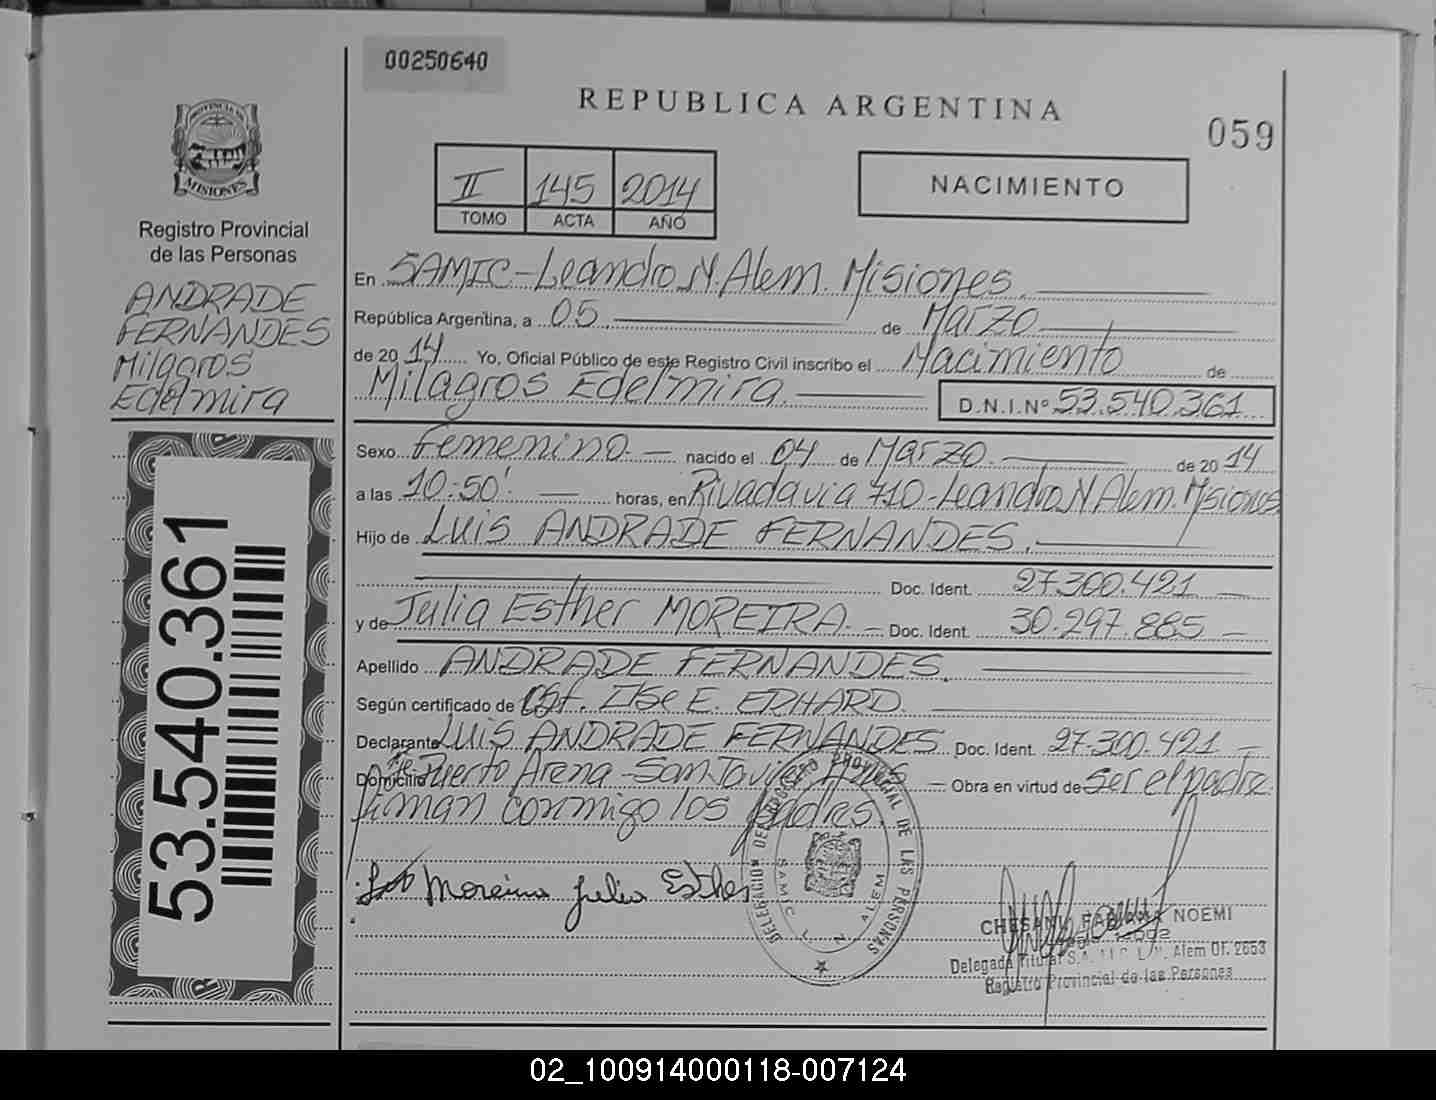 00250640
REPUBLICA ARGENTINA
059
PROVINCIA DE
MISIONES
Registro Provincial
de las Personas
ANDRADE
FERNANDES
Milagros
Edelmira
53.540.361
II 145 2014
TOMO ACTA AÑO
NACIMIENTO
En SAMIC-Leandro N. Alem. Misiones.
República Argentina, a 05 de Marzo
de 2014 Yo, Oficial Público de este Registro Civil inscribo el Nacimiento de
Milagros Edelmira. D.N.I.Nº 53.540.361
Sexo Femenino. nacido el 04 de Marzo. de 2014
a las 10:50' horas, en Rivadavia 710-Leandro N Alem. Misiones
Hijo de Luis ANDRADE FERNANDES.
Doc. Ident. 27.300.421
y de Julia Esther MOREIRA. Doc. Ident. 30.297.885
Apellido ANDRADE FERNANDES.
Según certificado de Obst. Ilse E. ERHARD.
Declarante LUIS ANDRADE FERNANDES Doc. Ident. 27.300.421
Domicilio Puerto Arena-San Javier Obra en virtud de ser el padre.
Firman conmigo los padres.
Moreira Julia Esther
DELEGACION DEL REGISTRO PROVINCIAL DE LAS PERSONAS
SAMIC L. N. ALEM
CHESANI FABIANA NOEMI
Delegada Titular S.A.M.I.C. L.N. Alem Of. 2653
Registro Provincial de las Personas
02_100914000118-007124